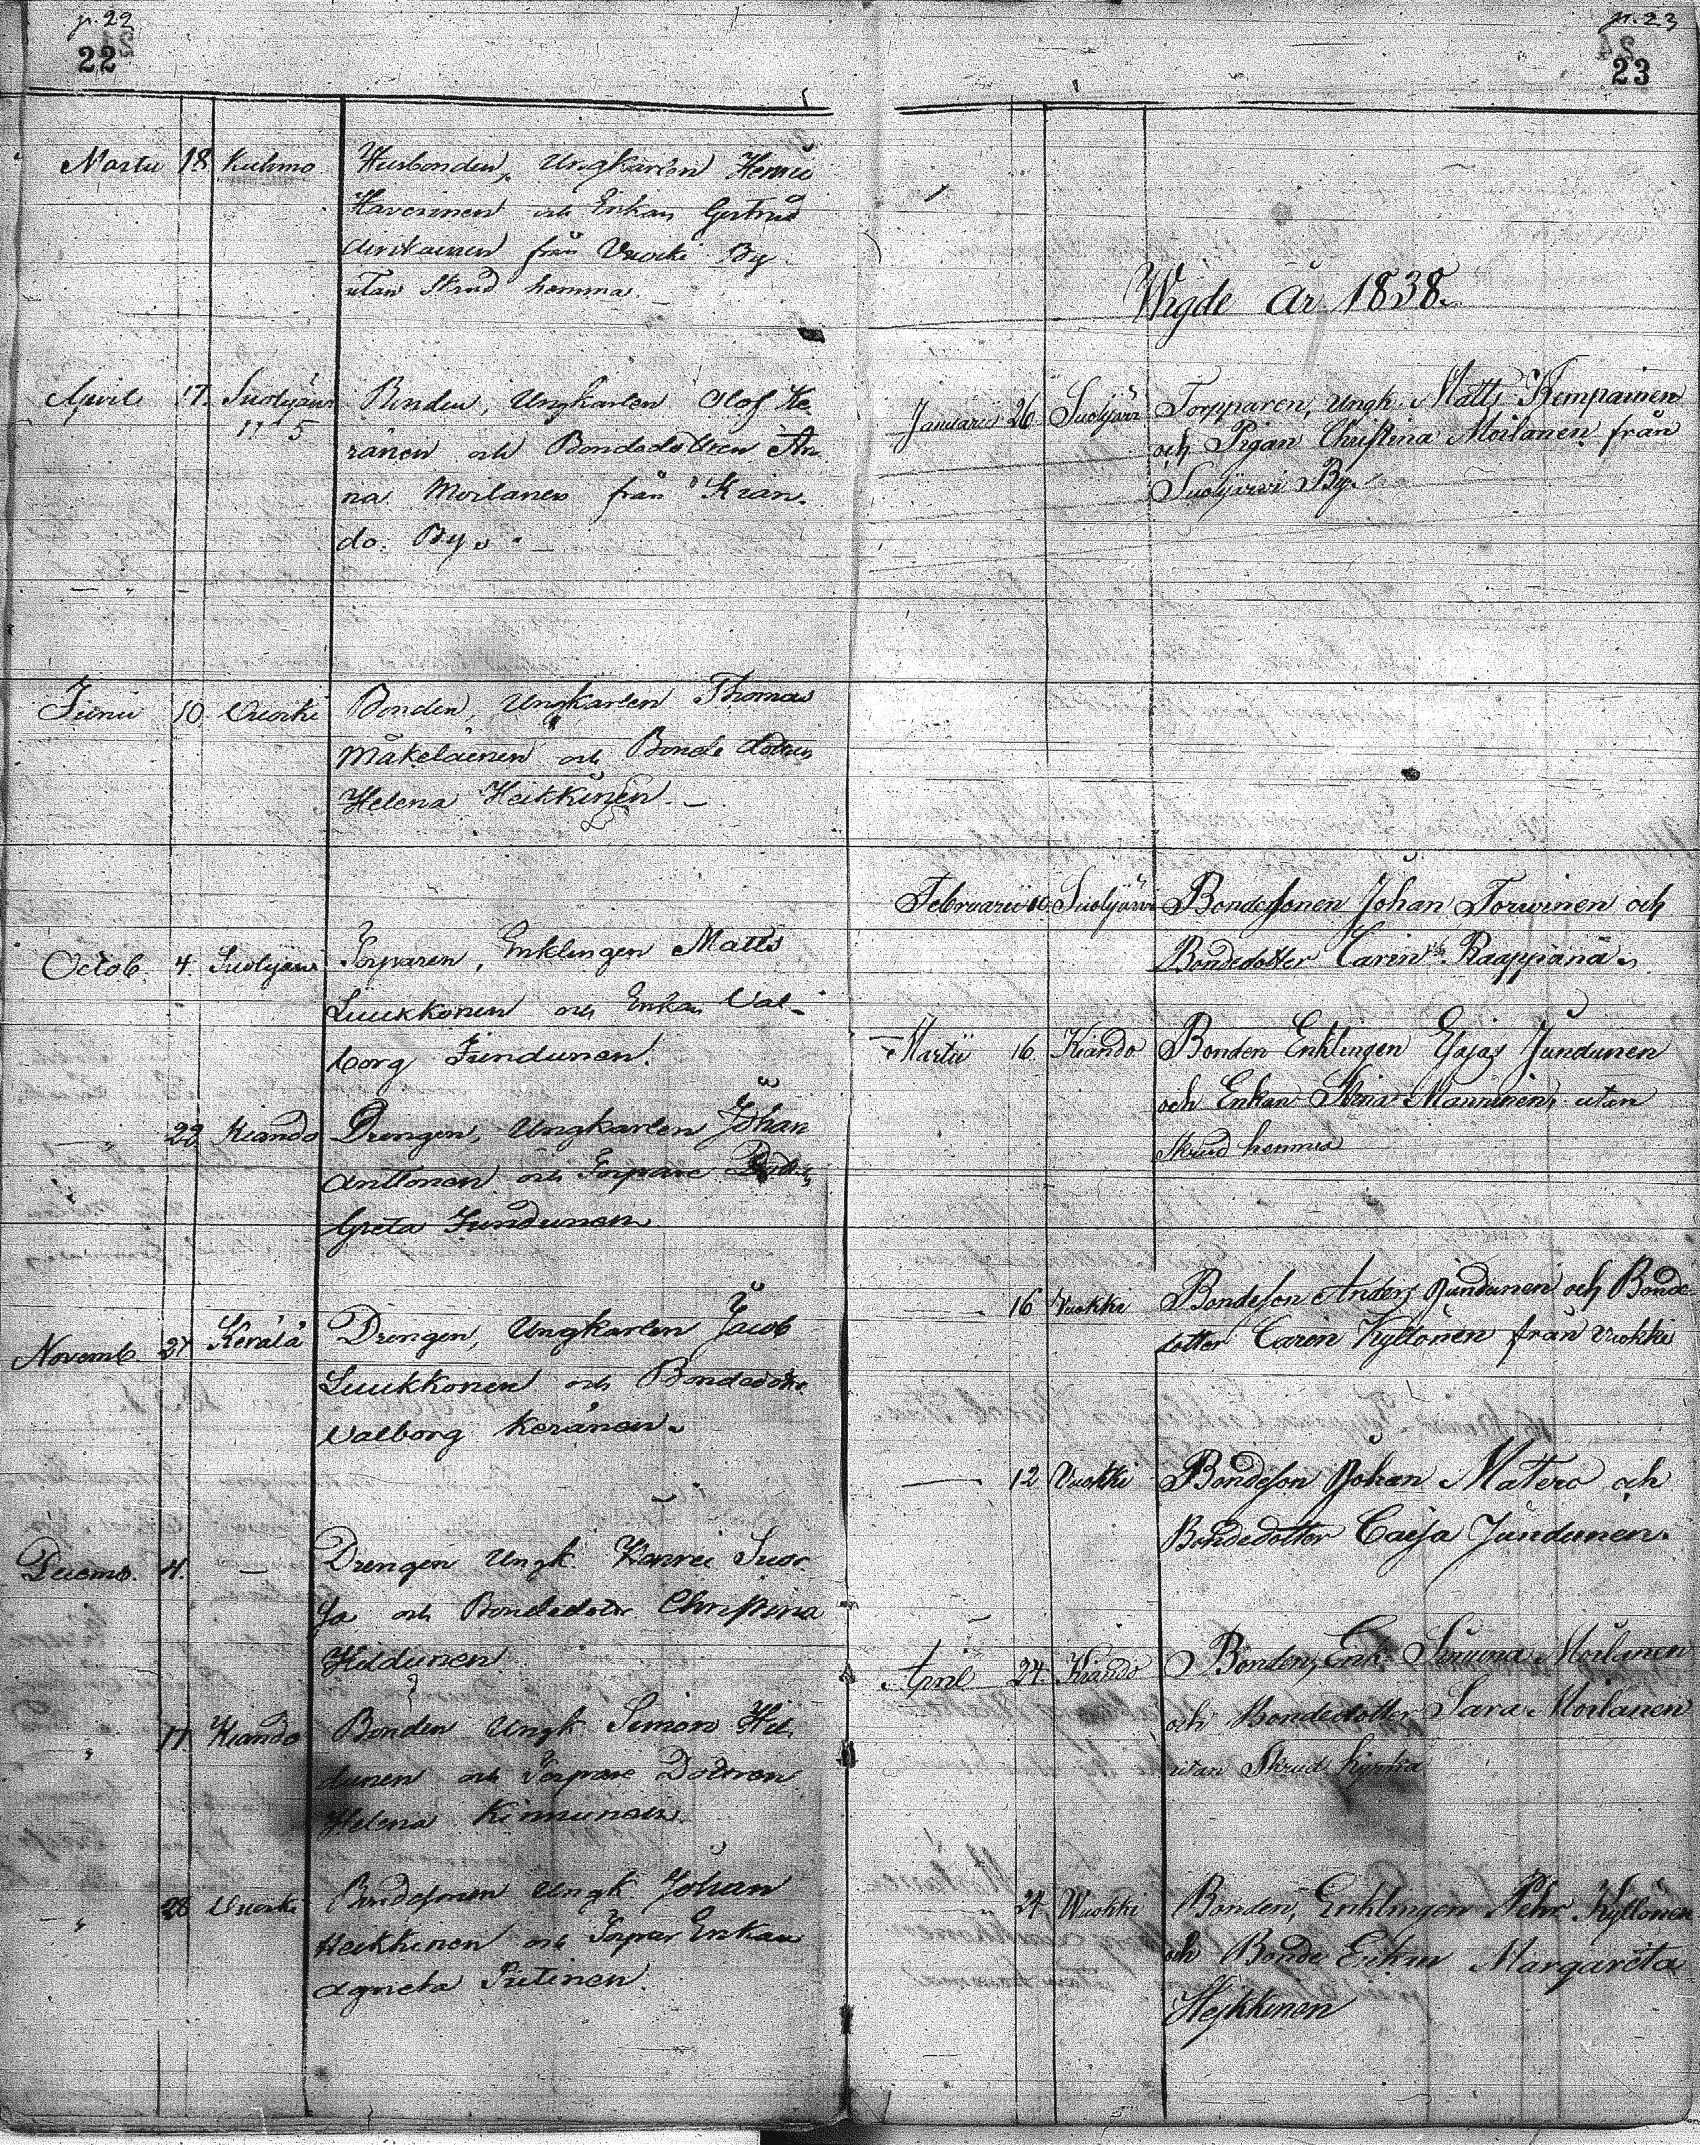 p. 22
22
Martii 18 Kuhmo Husbonden, Ungkarlen Henric
Haverinen och Enkan Gertrud
från Vuocki By
utan Skrud hemma.
April 17. Suolijärvi Bonden, Ungkarlen Olof Ke
11 5
ränen och Bondedottren An
na Moilanen från Kian
do By.
Junii 10 Vuocki Bonden, Ungkarlen Thomas
Mäkeläinen och Bonde dottren
Helena Heikkinen.
Octob. 4. Suolijärvi Torparen, Enklingen Matts
Luukkonen och Enkan Val
borg Jundunen.
22 Kiando Drengen, Ungkarlen Johan
Anttonen och Torpare
Greta Jundunen
Novemb 27 Kerälä Drengen, Ungkarlen Jacob
Luukkonen och Bondedottr
Valborg Keränen.
Decemb. 4. — Drengen Ungk Henric Juor
ja och Bondedotter Christina
Heldunen
" 17 Kiando Bonden Ungk Simon Hil
dunen och Torpare Dottren
Helena Kinnunen.
" 26 Vuocki Bondesonen Ungk Johan
Heikkinen och Torpar Enkan
Agneta Piitinen
p. 23
23
Wigde År 1838.
Januarii 26. Suolijärvi Torpparen, Ungk. Matts Kemppainen
och Pigan Christina Moilanen från
Suolijärvi By.
Februarii 10 Suolijärvi Bondesonen Johan Torvinen och
Bondedotter Carin Raappana.
Martii 16. Kiando Bonden Enklingen Esajas Jundunen
och Enkan Stina Manninen, utan
Skrud hemma
— 16 Vuokki Bondeson Anders Jundunen och Bonde
dotter Caren Kyllönen från Vuokki
— 12 Vuokki Bondeson Johan Matero och
Bondedotter Caisa Jundunen.
April 24. Kiando Bonden, Enk. Moilanen
och Bondedotter Sara Moilanen
utan Skrud hyrka
24 Wuokki Bonden, Enklingen Pehr Kyllönen
och Bonde Enkan Margareta
Hejkkinen